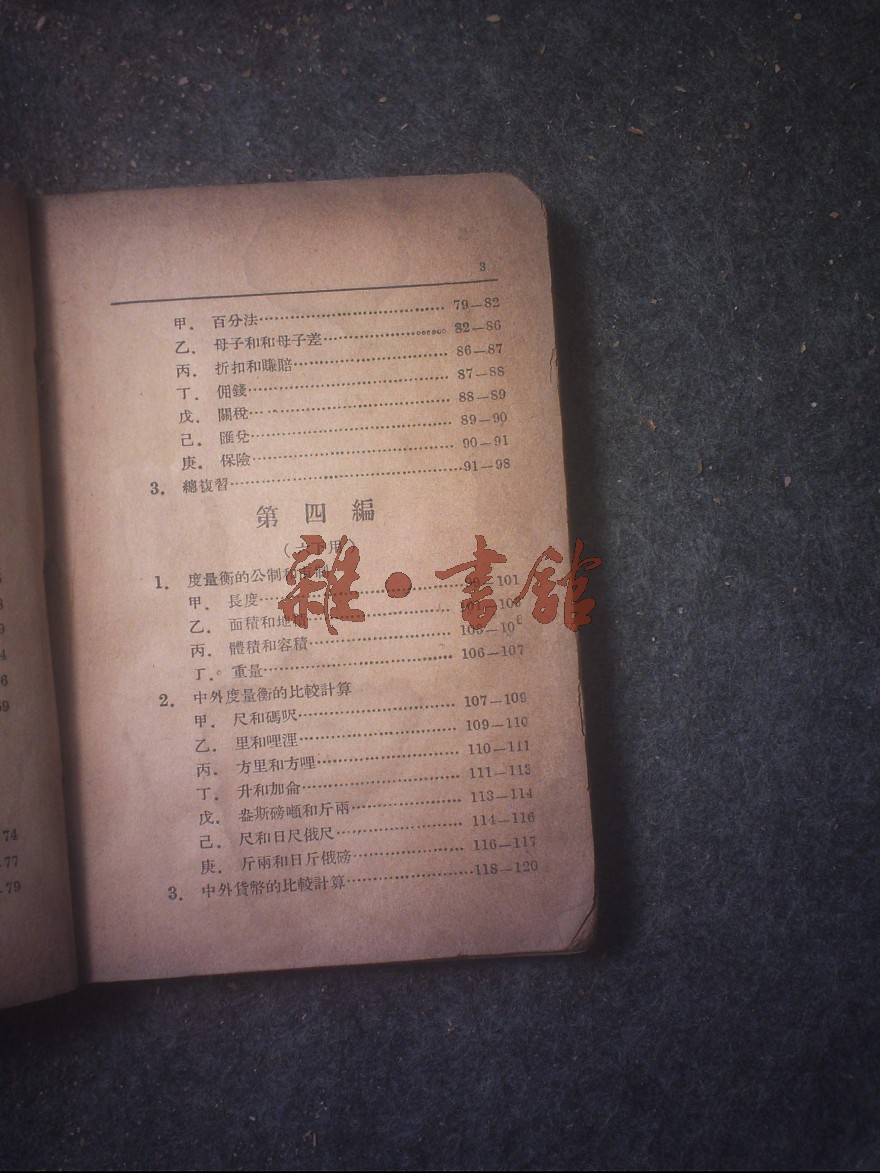 3
甲． 百分法 79—82
乙． 母子和和母子差 82—86
丙． 折扣和賺賠 86—87
丁． 佣錢 87—88
戊． 關稅 88—89
己． 匯兌 89—90
庚． 保險 90—91
3． 總復習 91—98
第四編
（六下用）
1． 度量衡的公制和市制
甲． 長度 99—101
乙． 面積和地積 101—103
丙． 體積和容積
丁． 重量 106—107
2． 中外度量衡的比較計算
甲． 尺和碼呎 107—109
乙． 里和哩浬 109—110
丙． 方里和方哩 110—111
丁． 升和加侖 111—113
戊． 盎斯磅噸和斤兩 113—114
己． 尺和日尺俄尺 114—116
庚． 斤兩和日斤俄磅 116—117
3． 中外貨幣的比較計算 118—120
雜·書館
74
77
79